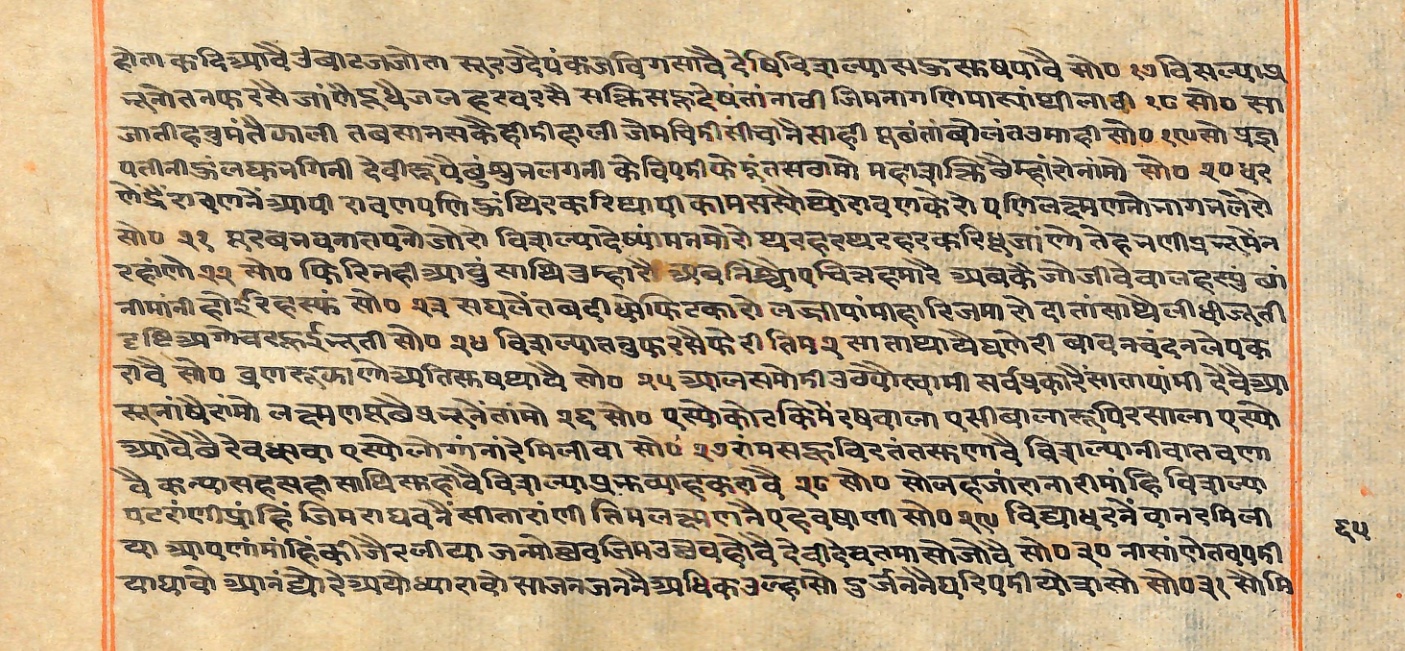 होता कदि आवै उवाटज जोता सूर उदै पंकज विगसावै देषि विशल्या सऊ सूष पावै सो० १७ विसल्या प्र
नूनो तन फरसै जांणै दूधै जलहर वरसै सक्ति सकू देषंतां नावी जिम नागणि मास्यां घी लावी १८ सो० सा
जाती हनुमंतै काली तव सा न सकै हीमी हाली जेम चिमी सींचानै साही मुचंतां बोलं तउमाही सो० १९ सो प्रज्ञ
पतीनी ऊं लघू नगिनी देवीरूपै बुं श्रुन लगनी के विपमी फेमूं तस ठामो महाशक्ति छै म्हांरो नांमो सो० २० धर
णेंद्रैं रावणनें आपी रावण पणि ऊं थिर करि थापी काम सस्यो ए रावण केरो पणि लक्ष्मणनो नाग नलेरो
सो० २१ पूरव नव ना तपनो जोरो विशल्या देष्यां मन मोरो थरहर थरहर करि धूजांणो तेहनणी प्र नूमें न
रहांणो २२ सो० फिरि नही आवुं साथि तुम्हारै अव निश्चो ए चित्त हमारै अवकै जो जीवे वाल हस्युं छां
नीमांनी होई रहस्यूं सो० २३ सघलें तव दीधो फिटकारो लज्जा पांमी हारि जमारो दातां साथै लीधी जूती
दृष्टि अगोचर ऊई नूती सो० २४ विशल्या तनु फरसै फेरी तिम २ साता थायै घणेरी बावन चंदन लेप क
रावै सो० व्रण रूकाणो अति सूष थायै सो० २५ आलस मोमी उठ्यो स्वामी सर्व प्रकारें साता पांमी देवै आ
सूनांषै रांमो लक्ष्मण पूछै प्र नूनें तांमो २६ सो० ए स्यो कोट किमें रषवाला ए सी बाला रूपि रसाला ए स्यो
आवै छै रे वधावा ए स्यो लोगां नां रे मिलीवा सो० २७ रांम सहू विरतंत सूणावै विशल्यानी वात वणा
वै कन्या सहस हा साथि सूहावै विशल्या प्र नू व्याह करावै २८ सो० सोलह जारा नारी मांहि विशल्या
पटरांणी प्रांहिं जिम राघवनैं सीता रांणी तिम लक्ष्मणनै एह वषाणी सो० २९ विद्याधरनें वानर मिली
या आपणां मांहिं की जै रलीया जन्मोछव जिम उछव होवै देवी देव तमासो जोवै सो० ३० नासांणे तव पमी
या घावो आनंद्यो रे अयोध्या रावो साजन जननै अधिक उल्हासो दुर्जननै घरि पमीयो त्रासो सो० ३१ सोमि
६५